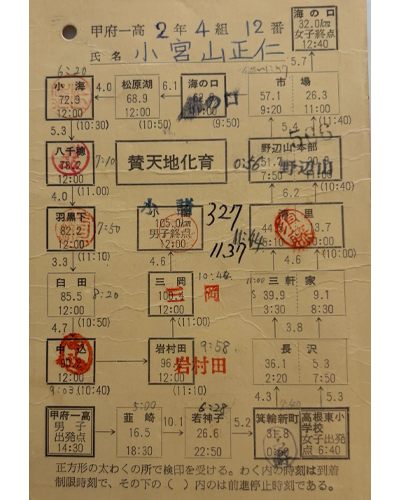 甲府一高 2年4組 12番
氏名 小宮山正仁
海の口
32.0km
女子終点
12:40
6:20
5.7
小海
72.9
12:00
4.0
松原湖
68.9
12:00
6.1
海の口
12:00
市場
57.1 26.3
9:20 11:00
5.3
(10:30)
(10:50)
(9:50)
5.4
(11:00)
八千穂
12:00
7:10
賛天地化育
野辺山本部
野辺山
7:50
4.0
(11:00)
6.2
(10:40)
羽黒下
82.2
12:00
7:50
小諸
105.0km
男子終点
12:00
327
11:44
11.37
3.3
(11:10)
4.6
4.6
臼田
85.5
12:00
8:20
三岡
12:00
三岡
10:44
11:00
三軒家
39.9 9.1
3:30 8:50
4.7
(10:50)
(11:00)
3.8
中込
12:00
9:03
(10:40)
岩村田
96
12:00
岩村田
9:58
長沢
36.1 5.3
2:30 7:50
4.3
5.3
甲府一高
男子
出発点
14:30
5:00
韮崎
16.5
18:30
10.1
6:28
若神子
26.6
22:50
5.2
箕輪新町
31.8
高根東小
学校
女子出発
点 6:40
正方形の太わくの所で検印を受ける。わく内の時刻は到着
制限時刻で、その下の( )内のは前進停止時刻である。